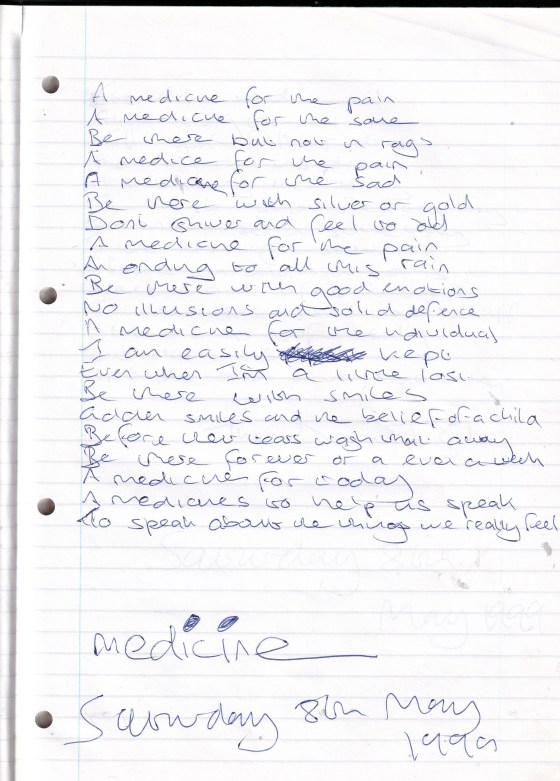 A medicine for the pain
A medicine for the sane
Be there but not in rags
A medice for the pain
A medicine for the sad
Be there with silver or gold
Dont shiver and feel to old
A medicine for the pain
An ending to all this rain
Be there with good emotions
No illusions and solid defence
A medicine for the individual
I am easily kept
Even when I'm a little lost
Be there with smiles
smiles and the belief of a child
Before their tears wash that away
Be there forever or a even a week
A medicine for today
A medicines to help us speak
To speak about the things we really feel
medicine
Saturday 8th May
1999